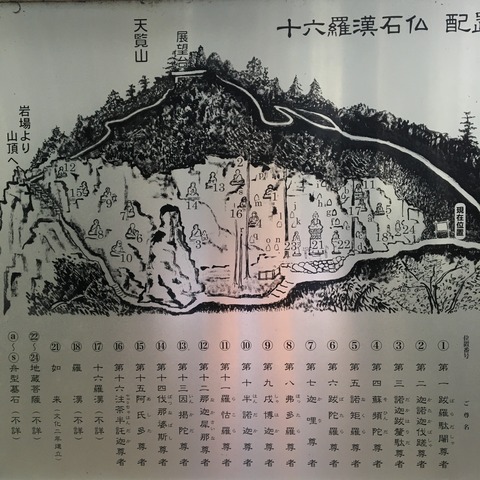 十六羅漢石仏 配置
天覧山
展望台
岩場より
山頂へ
現在位置
位置番号 ご尊名
① 第一 跋羅駄闍尊者
② 第二 迦諾迦伐蹉尊者
③ 第三 諾迦跋釐駄尊者
④ 第四 蘇頻陀尊者
⑤ 第五 諾矩羅尊者
⑥ 第六 跋陀羅尊者
⑦ 第七 迦哩尊者
⑧ 第八 弗多羅尊者
⑨ 第九 戍博迦尊者
⑩ 第十 半諾迦尊者
⑪ 第十一 羅怙羅尊者
⑫ 第十二 那迦犀那尊者
⑬ 第十三 因掲陀尊者
⑭ 第十四 伐那婆斯尊者
⑮ 第十五 阿氏多尊者
⑯ 第十六 注荼半託迦尊者
⑰ 十六羅漢（不詳）
⑱ 羅漢（不詳）
㉑ 如来（文化二年建立）
㉒〜㉔ 地蔵菩薩（不詳）
ⓐ〜ⓢ 舟型墓石（不詳）